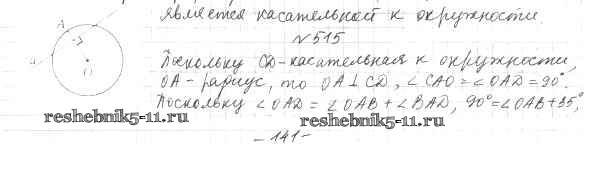 является касательной к окружности.
N 515
Поскольку CD-касательная к окружности,
OA-радиус, то OA⊥CD, ∠CAO=∠OAD=90°.
Поскольку ∠OAD=∠OAB+∠BAD, 90°=∠OAB+35°,
reshebnik5-11.ru reshebnik5-11.ru
-141-
A
O